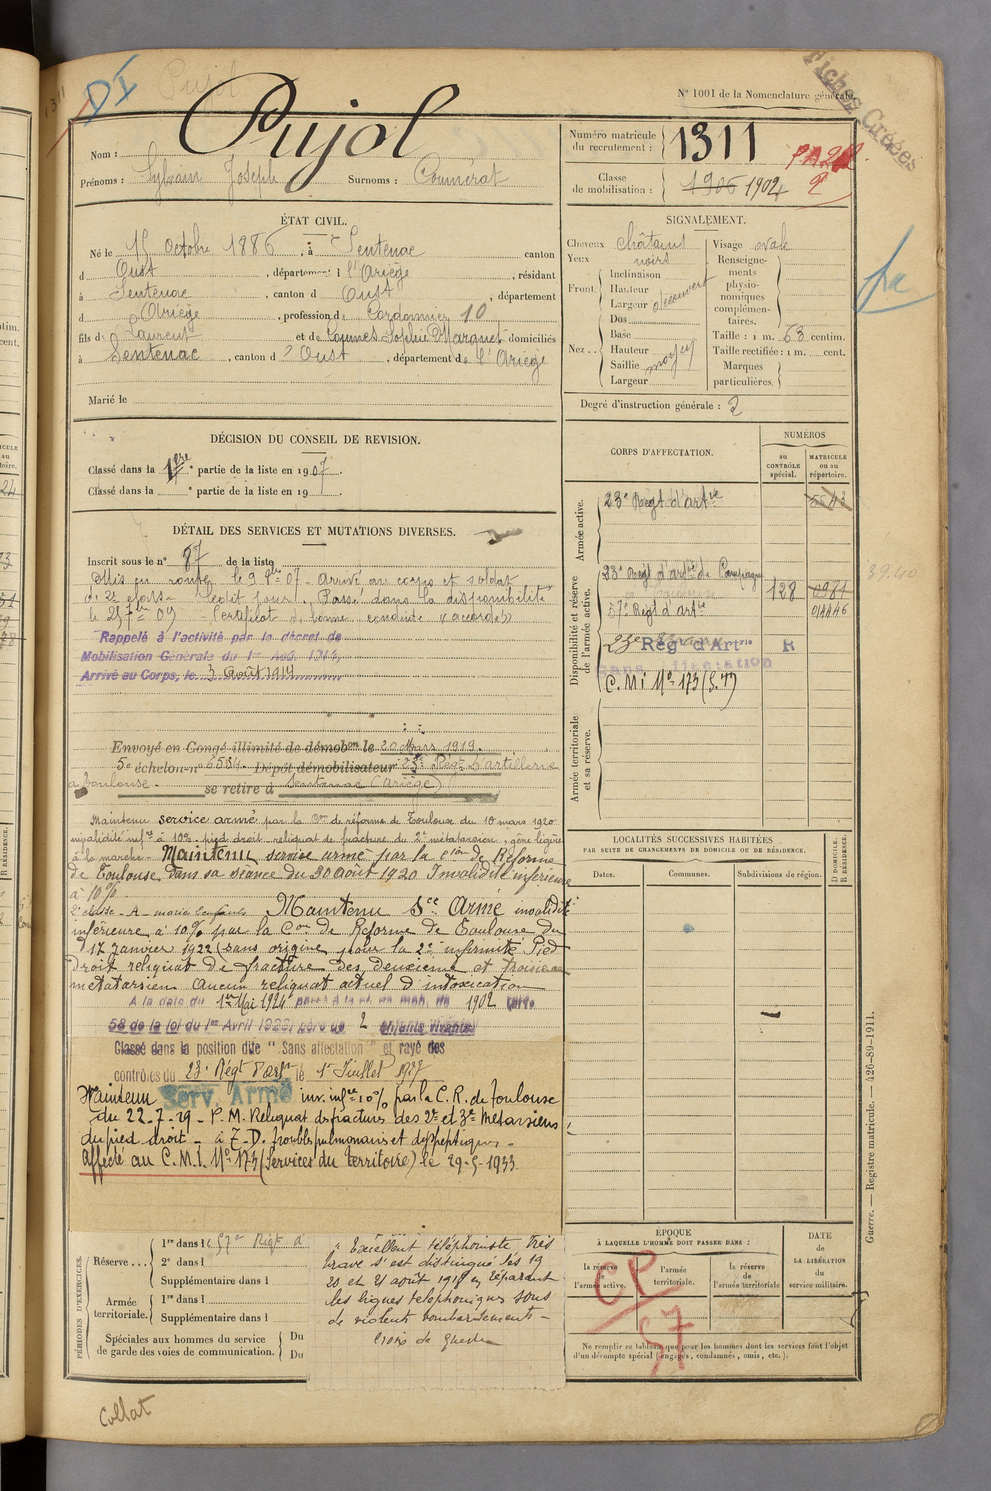 DI
Fiches Créées
N° 1001 de la Nomenclature générale.
Nom : Pujol
Prénoms : Sylvain Joseph Surnoms : Coumérat
Numéro matricule du recrutement : 1311
Classe de mobilisation : 1906 1902
ÉTAT CIVIL.
Né le 15 Octobre 1886, à Sentenac canton
d Oust, département d l'Ariège, résidant
à Sentenac, canton d Oust, département
d Ariège, profession de Cordonnier 10
fils de Laurent et de Commes Sophie Marguerite domiciliés
à Sentenac, canton d'Oust, département de l'Ariège
Marié le
SIGNALEMENT.
Cheveux châtains
Yeux noirs
Front. Inclinaison
Hauteur
Largeur découvert
Nez.. Dos
Base
Hauteur
Saillie moyen
Largeur
Visage ovale
Renseignements physionomiques complémentaires.
Taille : 1 m. 63 centim.
Taille rectifiée : 1 m. cent.
Marques particulières.
Degré d'instruction générale : 2
DÉCISION DU CONSEIL DE REVISION.
Classé dans la 1ère partie de la liste en 1907.
Classé dans la e partie de la liste en 19
DÉTAIL DES SERVICES ET MUTATIONS DIVERSES.
Inscrit sous le n° 87 de la liste
Mis en route le 3 8bre 07 - Arrivé au corps et soldat
de 2e classe ledit jour. Passé dans la disponibilité
le 25 7bre 09 - Certificat de bonne conduite "accordé"
Rappelé à l'activité par le décret de
Mobilisation Générale du 1er Août 1914,
Arrivé au Corps, le 3 Août 1914
Envoyé en Congé illimité de démobon le 20 Mars 1919.
5e échelon n° 6584 Dépôt démobilisateur 23e Régt d'artillerie
à Toulouse. se retire à Sentenac (Ariège)
Maintenu service armé par la Con de réforme de Toulouse du 10 mars 1920
invalidité infre à 10% pied droit - reliquat de fracture du 2e métatarsien, gêne légère
à la marche - Maintenu service armé par la Cion de Réforme
de Toulouse dans sa séance du 30 Août 1920 Invalidité inférieure
à 10%
2e classe - A - marié 2 enfants Maintenu See Armé invalidité
inférieure à 10% par la Con de Réforme de Toulouse du
17 Janvier 1922 (sans origine pour la 2e infirmité Pied
droit reliquat de fracture des deuxième et troisième
métatarsien aucun reliquat actuel d'intoxication
A la date du 1er Mai 1924 passé à la cl. de mob. de 1902 (art.
58 de la loi du 1er Avril 1923) père de 2 enfants vivants
Classé dans la position dite "Sans affectation" et rayé des
contrôles du 23e Régt d'art le 1er Juillet 1927
Maintenu Serv. Armé inv. infre 10% par la C.R. de Toulouse
du 22-7-29 - P.M. Reliquat de fractures des 2e et 3e Métarsiens
du pied droit - à 7-D. troubles pulmonaires et dyspeptiques -
Affecté au C.M.I. N° 173 (Services du territoire) le 29-5-1933
CORPS D'AFFECTATION.
NUMÉROS
au CONTRÔLE spécial.
MATRICULE ou au répertoire.
Armée active.
23e Régt d'artie
Disponibilité et réserve de l'armée active.
23e Régt d'artie de Campagne 128
57e Régt d'artie
23e Rég' d'Art'rie R
sans affectation
C.M.I N° 173 (S.T)
Armée territoriale et sa réserve.
LOCALITÉS SUCCESSIVES HABITÉES
PAR SUITE DE CHANGEMENTS DE DOMICILE OU DE RÉSIDENCE.
Dates. Communes. Subdivisions de région.
D DOMICILE. R RÉSIDENCE.
PÉRIODES D'EXERCICES.
Réserve... 1re dans le 57e Régt d'
2e dans l
Supplémentaire dans l
Armée territoriale. 1re dans l
Supplémentaire dans l
Spéciales aux hommes du service de garde des voies de communication. Du
Du
" Excellent téléphoniste très
brave s'est distingué les 19
20 et 21 août 1918 en réparant
les lignes téléphoniques sous
de violents bombardements -
Croix de guerre
ÉPOQUE
À LAQUELLE L'HOMME DOIT PASSER DANS :
la réserve de l'armée active. l'armée territoriale. la réserve de l'armée territoriale
DATE de LA LIBÉRATION du service militaire.
CP
57
Ne remplir ce tableau que pour les hommes dont les services font l'objet
d'un décompte spécial (engagés, condamnés, omis, etc.).
Guerre. — Registre matricule. — 426-89-1911.
Collat